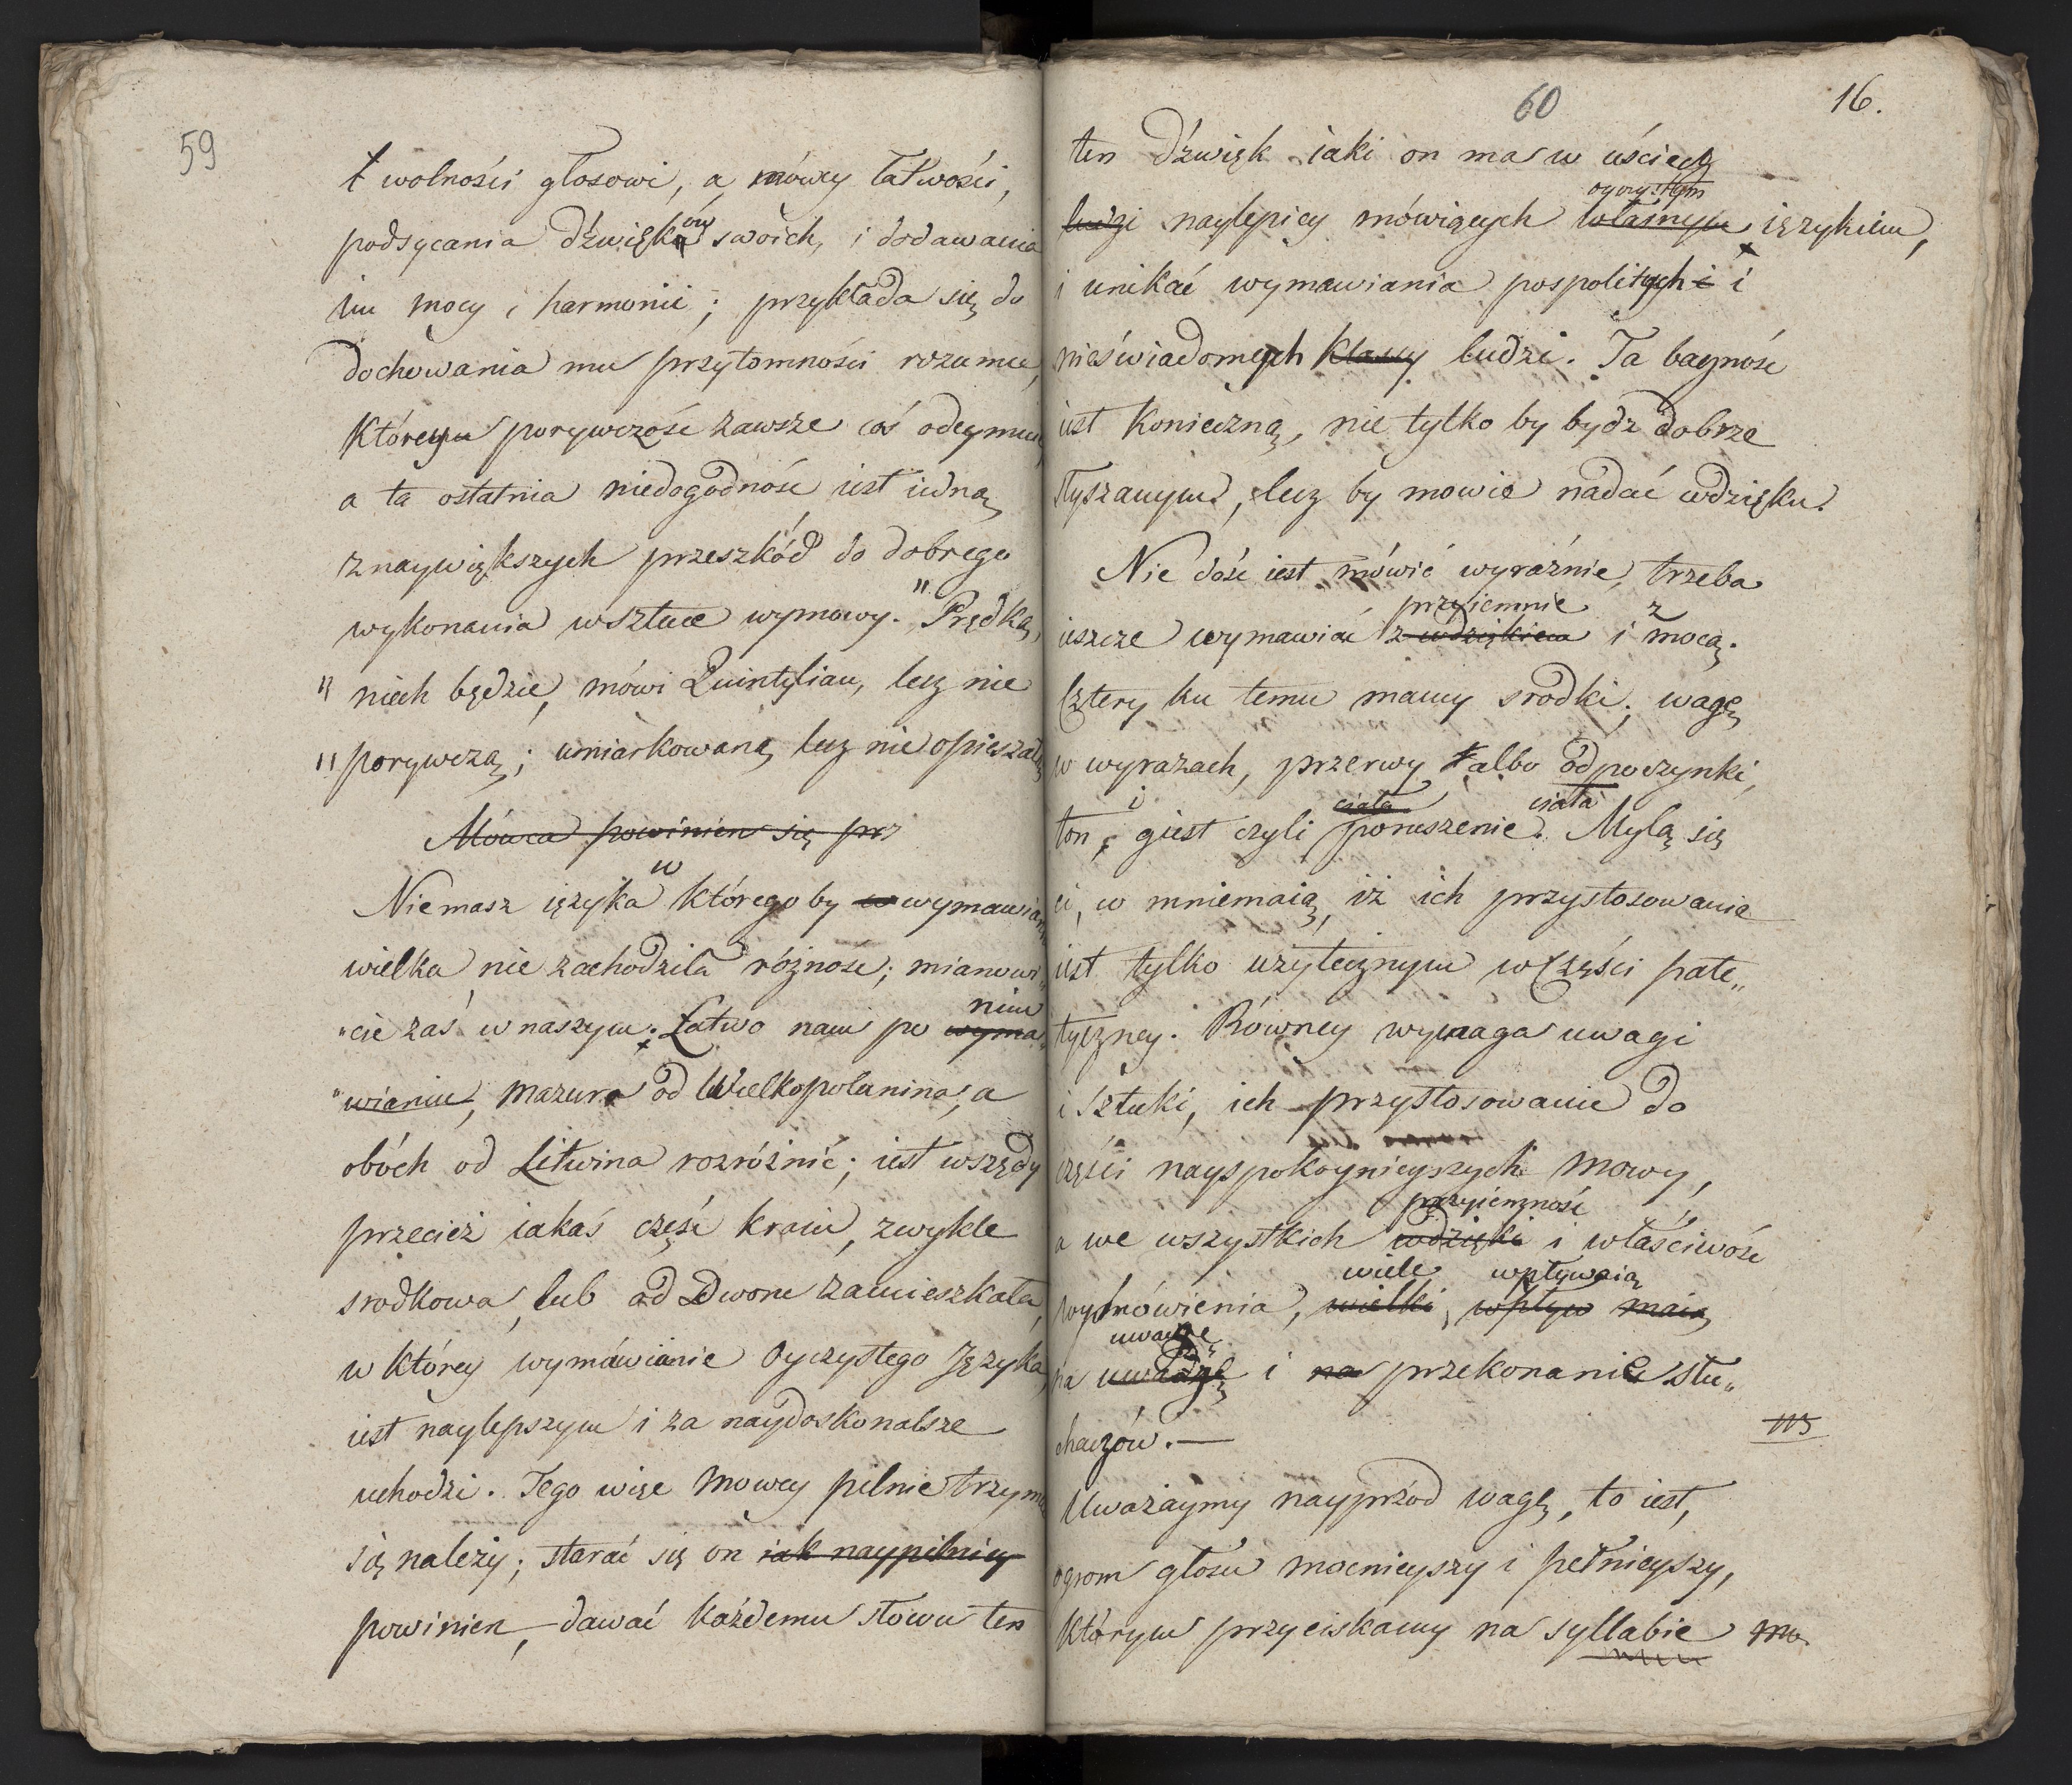 59
ł wolności głosowi, a mówcy łatwości,
podsycania dźwięków swoich, i dodawania
im mocy i harmonii; przykłada się do
dochowania mu przytomności rozumu,
któremu porywczość zawsze coś odeymuie,
a ta ostatnia niedogodność iest iedną
z naywiększych przeszkód do dobrego
wykonania w sztuce wymowy. „Prędką,
„ niech będzie, mówi Quintylian, lecz nie
„ porywczą; umiarkowaną lecz nie opieszałą
Mówca powinien się prz
w
Niemasz ięzyka którego by w wymawianiu
wielka nie zachodziła różność; mianowi„
„cie zaś w naszym. Łatwo nam po wyma„
nim
„wianiu, mazura od Wielkopolanina, a
obóch od Litwina rozróżnić; iest wszędy
przecież iakaś część kraiu, zwykle
srodkowa, lub od Dworu zamieszkała,
w którey wymawianie Oyczystego Języka,
iest naylepszym i za naydoskonalsze
uchodzi. Tego więc mowcy pilnie trzymać
się należy; starać się on iak naypilniey
powinien, dawać każdemu słowu ten
60
16.
ten dźwięk iaki on ma w uściech
oyczystym
ludzi naylepiey mówiących własnym ięzykiem,
i unikać wymawiania pospolitych i i
nieświadomych klassy ludzi. Ta baczność
iest konieczną, nie tylko by bydz dobrze
słyszanym, lecz by mowie nadać wdzięku.
Nie dość iest mówić wyraźnie, trzeba
przyiemnie z
ieszcze wymawiać z wdziękiem i mocą.
Cztery ku temu mamy srodki; wagę
w wyrazach, przerwy albo odpoczynki,
i ciała ciała
ton, giest czyli poruszenie. Mylą się
ci, co mniemaią, iż ich przystosowanie
iest tylko użytecznym w części pate„
tyczney. Równey wymaga uwagi
i sztuki, ich przystosowanie do
części nayspokoynieyszych mowy,
przyiemność
a we wszystkich wdzięki i właściwość
wiele wpływaią
wymówienia, wielki wpływ maią
uwagę
na uwagę i na przekonanie słu„
chaczów. —
Uważaymy nayprzód wagę, to iest,
ogrom głosu mocnieyszy i pełnieyszy,
którym przyciskamy na syllabie